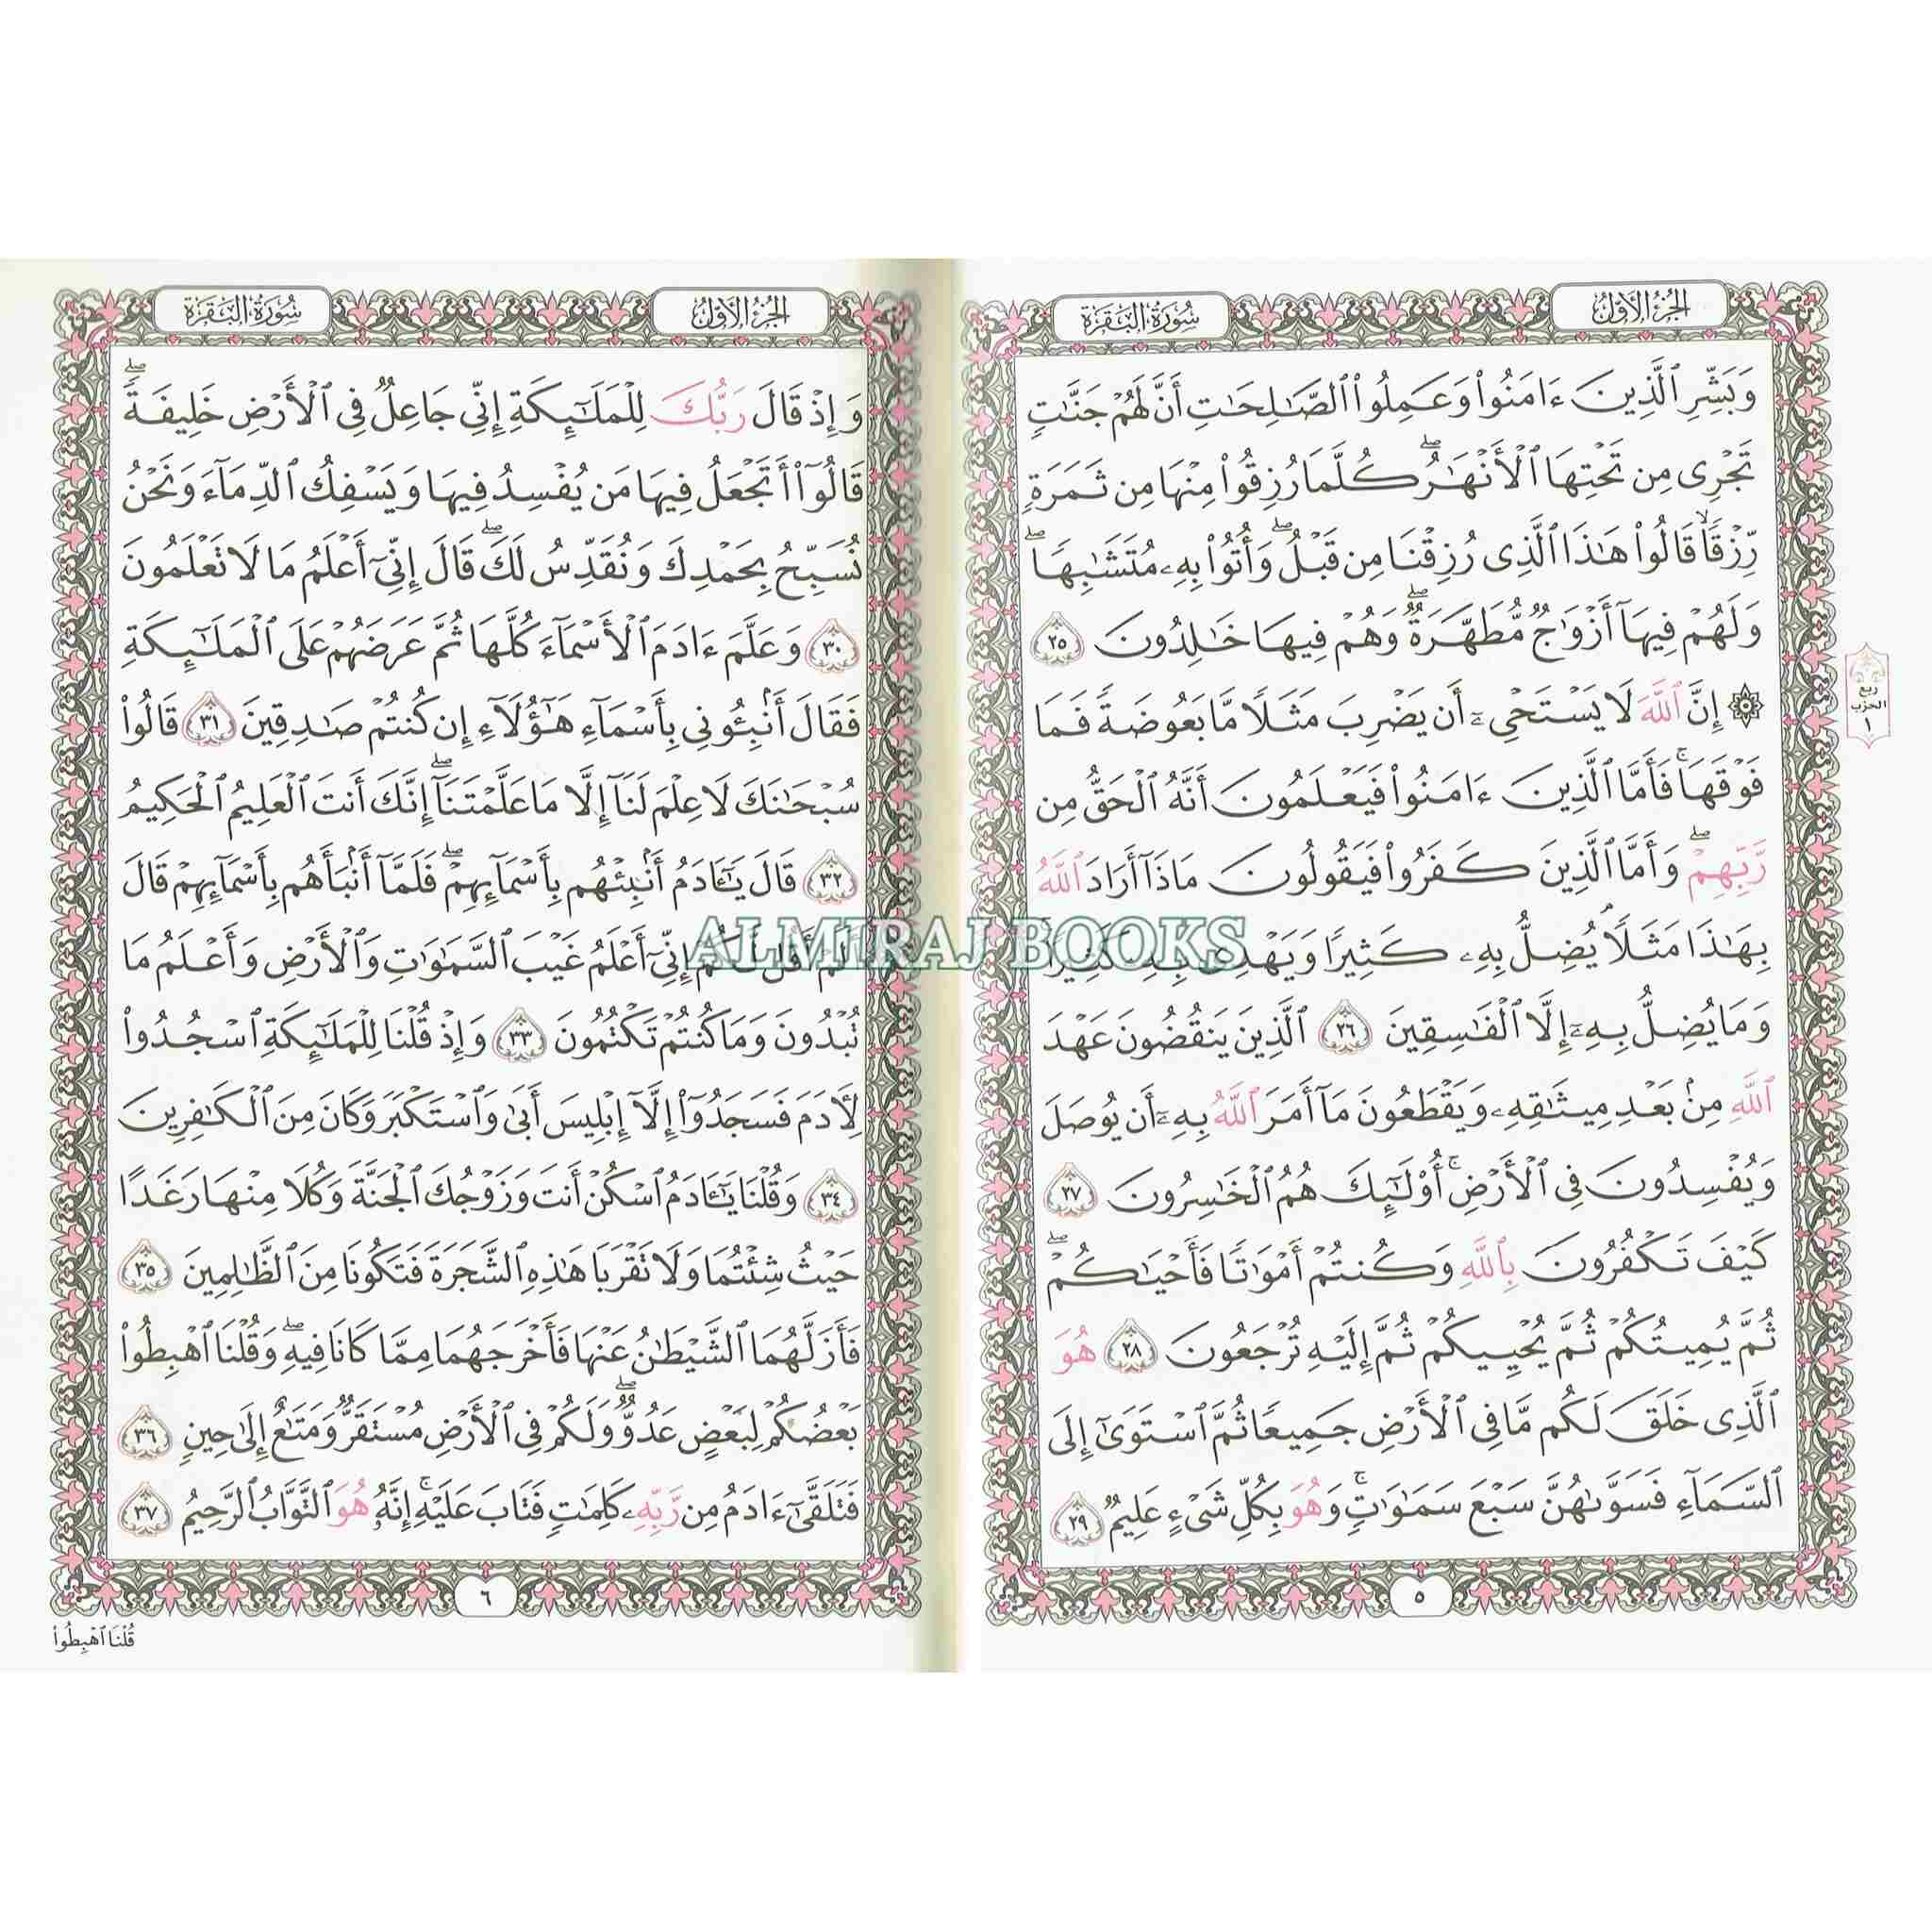 الجزء الأول
سورة البقرة
وَبَشِّرِ ٱلَّذِينَ ءَامَنُوا۟ وَعَمِلُوا۟ ٱلصَّـٰلِحَـٰتِ أَنَّ لَهُمْ جَنَّـٰتٍ
تَجْرِى مِن تَحْتِهَا ٱلْأَنْهَـٰرُ ۖ كُلَّمَا رُزِقُوا۟ مِنْهَا مِن ثَمَرَةٍ
رِّزْقًا ۙ قَالُوا۟ هَـٰذَا ٱلَّذِى رُزِقْنَا مِن قَبْلُ ۖ وَأُتُوا۟ بِهِۦ مُتَشَـٰبِهًا ۖ
وَلَهُمْ فِيهَآ أَزْوَٰجٌ مُّطَهَّرَةٌ ۖ وَهُمْ فِيهَا خَـٰلِدُونَ ٢٥
۞ إِنَّ ٱللَّهَ لَا يَسْتَحْىِۦٓ أَن يَضْرِبَ مَثَلًا مَّا بَعُوضَةً فَمَا
فَوْقَهَا ۚ فَأَمَّا ٱلَّذِينَ ءَامَنُوا۟ فَيَعْلَمُونَ أَنَّهُ ٱلْحَقُّ مِن
رَّبِّهِمْ ۖ وَأَمَّا ٱلَّذِينَ كَفَرُوا۟ فَيَقُولُونَ مَاذَآ أَرَادَ ٱللَّهُ
بِهَـٰذَا مَثَلًا ۘ يُضِلُّ بِهِۦ كَثِيرًا وَيَهْدِى بِهِۦ كَثِيرًا ۚ
وَمَا يُضِلُّ بِهِۦٓ إِلَّا ٱلْفَـٰسِقِينَ ٢٦ ٱلَّذِينَ يَنقُضُونَ عَهْدَ
ٱللَّهِ مِنۢ بَعْدِ مِيثَـٰقِهِۦ وَيَقْطَعُونَ مَآ أَمَرَ ٱللَّهُ بِهِۦٓ أَن يُوصَلَ
وَيُفْسِدُونَ فِى ٱلْأَرْضِ ۚ أُو۟لَـٰٓئِكَ هُمُ ٱلْخَـٰسِرُونَ ٢٧
كَيْفَ تَكْفُرُونَ بِٱللَّهِ وَكُنتُمْ أَمْوَٰتًا فَأَحْيَـٰكُمْ ۖ
ثُمَّ يُمِيتُكُمْ ثُمَّ يُحْيِيكُمْ ثُمَّ إِلَيْهِ تُرْجَعُونَ ٢٨ هُوَ
ٱلَّذِى خَلَقَ لَكُم مَّا فِى ٱلْأَرْضِ جَمِيعًا ثُمَّ ٱسْتَوَىٰٓ إِلَى
ٱلسَّمَآءِ فَسَوَّىٰهُنَّ سَبْعَ سَمَـٰوَٰتٍ ۚ وَهُوَ بِكُلِّ شَىْءٍ عَلِيمٌ ٢٩
٥
ربع
الحزب
١
الجزء الأول
سورة البقرة
وَإِذْ قَالَ رَبُّكَ لِلْمَلَـٰٓئِكَةِ إِنِّى جَاعِلٌ فِى ٱلْأَرْضِ خَلِيفَةً ۖ
قَالُوٓا۟ أَتَجْعَلُ فِيهَا مَن يُفْسِدُ فِيهَا وَيَسْفِكُ ٱلدِّمَآءَ وَنَحْنُ
نُسَبِّحُ بِحَمْدِكَ وَنُقَدِّسُ لَكَ ۖ قَالَ إِنِّىٓ أَعْلَمُ مَا لَا تَعْلَمُونَ
٣٠ وَعَلَّمَ ءَادَمَ ٱلْأَسْمَآءَ كُلَّهَا ثُمَّ عَرَضَهُمْ عَلَى ٱلْمَلَـٰٓئِكَةِ
فَقَالَ أَنۢبِـُٔونِى بِأَسْمَآءِ هَـٰٓؤُلَآءِ إِن كُنتُمْ صَـٰدِقِينَ ٣١ قَالُوا۟
سُبْحَـٰنَكَ لَا عِلْمَ لَنَآ إِلَّا مَا عَلَّمْتَنَآ ۖ إِنَّكَ أَنتَ ٱلْعَلِيمُ ٱلْحَكِيمُ
٣٢ قَالَ يَـٰٓـَٔادَمُ أَنۢبِئْهُم بِأَسْمَآئِهِمْ ۖ فَلَمَّآ أَنۢبَأَهُم بِأَسْمَآئِهِمْ قَالَ
أَلَمْ أَقُل لَّكُمْ إِنِّىٓ أَعْلَمُ غَيْبَ ٱلسَّمَـٰوَٰتِ وَٱلْأَرْضِ وَأَعْلَمُ مَا
تُبْدُونَ وَمَا كُنتُمْ تَكْتُمُونَ ٣٣ وَإِذْ قُلْنَا لِلْمَلَـٰٓئِكَةِ ٱسْجُدُوا۟
لِـَٔادَمَ فَسَجَدُوٓا۟ إِلَّآ إِبْلِيسَ أَبَىٰ وَٱسْتَكْبَرَ وَكَانَ مِنَ ٱلْكَـٰفِرِينَ
٣٤ وَقُلْنَا يَـٰٓـَٔادَمُ ٱسْكُنْ أَنتَ وَزَوْجُكَ ٱلْجَنَّةَ وَكُلَا مِنْهَا رَغَدًا
حَيْثُ شِئْتُمَا وَلَا تَقْرَبَا هَـٰذِهِ ٱلشَّجَرَةَ فَتَكُونَا مِنَ ٱلظَّـٰلِمِينَ ٣٥
فَأَزَلَّهُمَا ٱلشَّيْطَـٰنُ عَنْهَا فَأَخْرَجَهُمَا مِمَّا كَانَا فِيهِ ۖ وَقُلْنَا ٱهْبِطُوا۟
بَعْضُكُمْ لِبَعْضٍ عَدُوٌّ ۖ وَلَكُمْ فِى ٱلْأَرْضِ مُسْتَقَرٌّ وَمَتَـٰعٌ إِلَىٰ حِينٍ ٣٦
فَتَلَقَّىٰٓ ءَادَمُ مِن رَّبِّهِۦ كَلِمَـٰتٍ فَتَابَ عَلَيْهِ ۚ إِنَّهُۥ هُوَ ٱلتَّوَّابُ ٱلرَّحِيمُ ٣٧
٦
قُلْنَا ٱهْبِطُوا۟
ALMIRAJ BOOKS